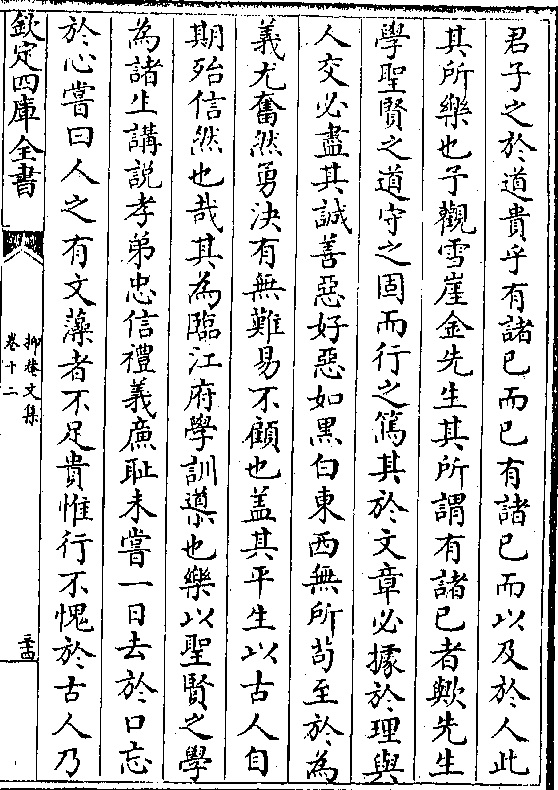 君子之於道貴乎有諸己而已有諸己而以及於人此
其所樂也予觀雪崖金先生其所謂有諸己者歟先生
學聖賢之道守之固而行之篤其於文章必據於理與
人交必盡其誠善惡好惡如黒白東西無所茍至於為
義尤奮然勇決有無難易不顧也蓋其平生以古人自
期殆信然也哉其為臨江府學訓導也樂以聖賢之學
為諸生講説孝弟忠信禮義亷耻未嘗一日去於口忘
於心嘗曰人之有文藻者不足貴惟行不愧於古人乃
欽定四庫全書
抑菴文集
卷十二
三十四